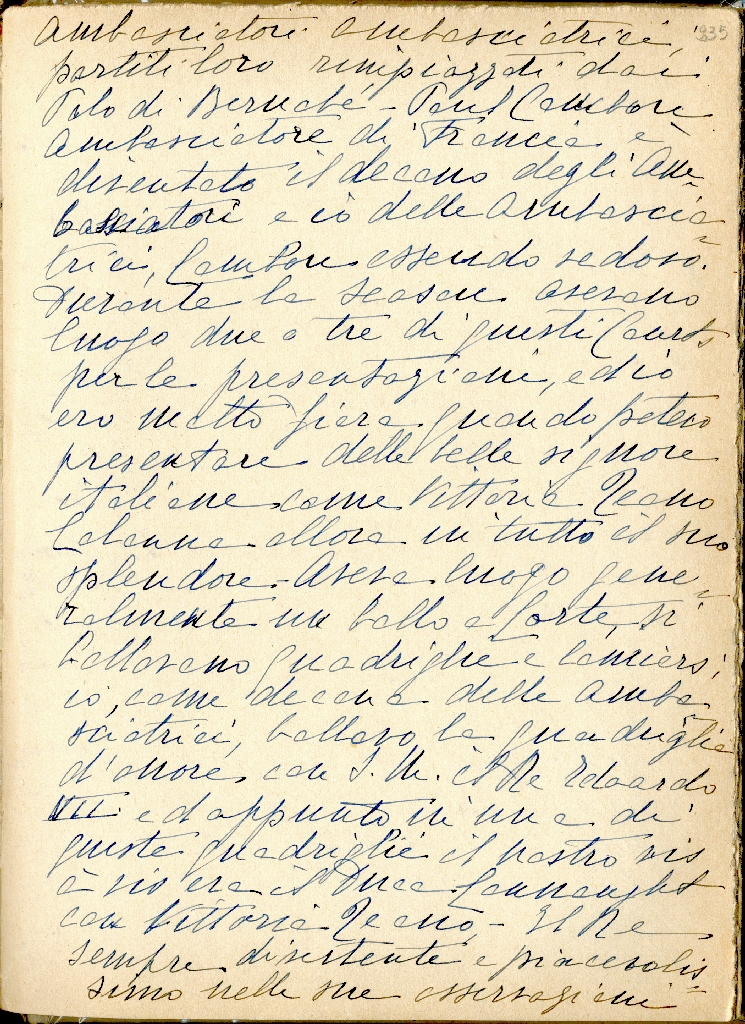 235
ambasciatori ambasciatrici,
partiti loro rimpiazzati dai
Polo di Bernabé - Paul Cambon
ambasciatore di Francia è
diventato il decano degli Am-
basciatori e io delle Ambascia-
trici, Cambon essendo vedovo.
Durante la season avevano
luogo due o tre di questi Courts
per le presentazioni, ed io
ero molto fiera quando potevo
presentare delle belle signore
italiane come Vittoria Teano
Colonna allora in tutto il suo
splendore - Aveva luogo gene-
ralmente un ballo a Corte, si
ballavano quadriglie e lanciers,
io, come decana delle Amba-
sciatrici, ballavo la quadriglia
d'onore con S. M. il Re Edoardo
VII ed appunto in una di
queste quadriglie il nostro vis
à vis era il Duca Connaught
con Vittoria Teano, - Il Re
sempre divertente e piacevolis-
simo nelle sue osservazioni